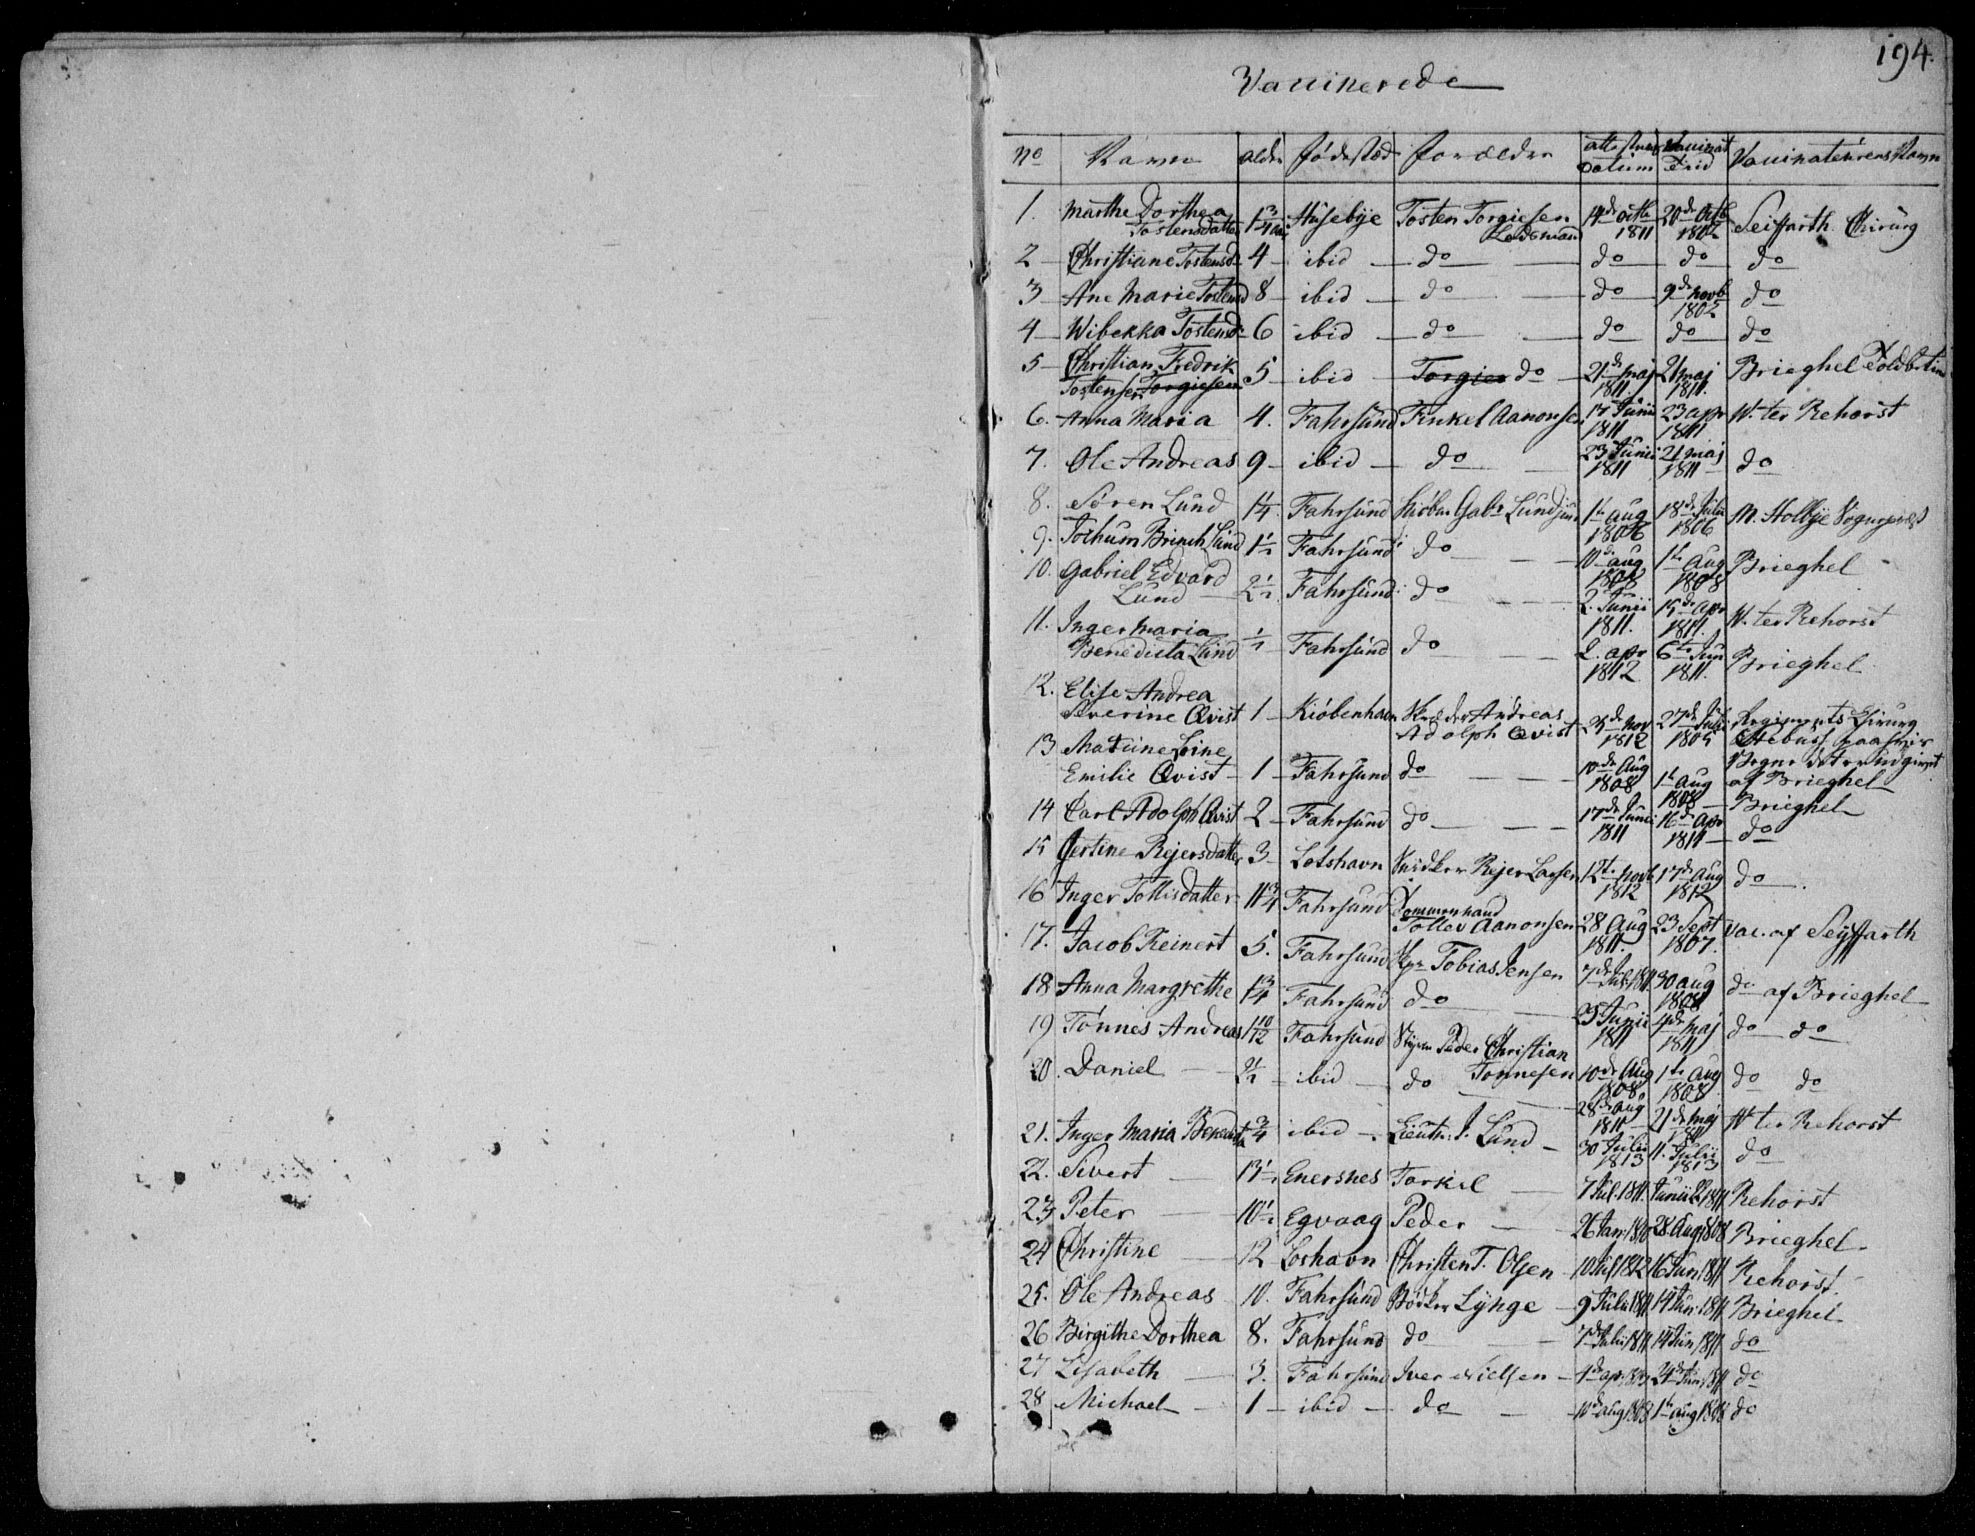 194.
Vaccinerede
No Navn alder fødested forældre attestens Datum Vaccinat. Tid Vaccinateurens Navn
1. Marthe Dorthea Tostensdatter 1 3/4 Husebye Tosten Torgiesen Lodsmann 14de octb 1811 20de octb 1802 Seiffarth Chirurg
2 Christiane Tostensd. 4 ibid do do do do
3 Ane Marie Tostensd 8 ibid do do 9de novb 1802 do
4 Wibekka Tostensd 6 ibid do do do do
5 Christian Fredrik Tostensen Torgiesen 5 ibid Torgies do 21de maj 1811 21 maj 1811. Brieghel
6. Anna Maria 4. Fahrsund Tinkel Aanonsen 17 Junii 1811 23 apr 1811 W. ter Rehorst
7. Ole Andreas 9 ibid do 23 Junii 1811 21 maj 1811 do
8. Søren Lund 1/4 Fahrsund Kiøbm Gabr Lund jun 1te aug 1806 18de Julii 1806 M. Holbye Sogneprest
9. Jochum Brinch Lund 1 1/2 Fahrsund do 10de aug 1808 1te Aug 1808 Brieghel
10. Gabriel Edvard Lund 2 1/2 Fahrsund do 2. Junii 1811. 15de apr 1811. W. ter Rehorst
11. Inger Maria Benedicta Lund 1/2 Fahrsund do 2. apr 1812 6te Jun 1811. Brieghel
12. Elise Andrea Severine Qvist 1 Kiøbenhavn Skræder Andreas Adolph Qvist nov 1812 27de 1805 Regiments Chirurg
13 Emilie Qvist 1 Fahrsund do 10de Aug 1808 1te Aug 1808 af Brieghel
14 Carl Adolph Qvist 2 Fahrsund do 17de Junii 1811 16de Apr 1811 Brieghel do
15 Jertine Rejersdatter 3 Lotshavn Rejer Larsen 12te novb 1812 17de Aug 1812 do
16 Inger Tollisdatter 11 3/4 Fahrsund Tømmermand Tollev Aanonsen 28 Aug 1811. 23 Sept 1807. Vac. af Seyffarth
17. Jacob Reinert 5. Fahrsund Skpr Tobias Jensen 7de Jul 1811 30 aug 1808 do af Brieghel
18 Anna Margrethe 1 3/4 Fahrsund do 25 Junii 1811 maj 1811 do do
19 Tønnes Andreas 1 10/12 Fahrsund Peder Christian Tønnesen 10de Aug 1808. 1te Aug 1808. do do
20. Daniel 2 1/2 ibid do 28de aug 1811 21de maj 1811 W ter Rehorst
21. Inger Maria Benedicta 3/4 ibid Lieutn: J. Lund 30 Julii 1813 11. Julii 1813 do
22. Sivert 13 1/2 Enersnes Torkil 7 Jul. 1811. Junii 1811 Rehorst
23 Peter 10 1/2 Egvaag Peder 26 Jan: 1810 28 Aug 1808 Brieghel
24 Christine 12 Loshavn Christen T. Olsen 10 Jul 1812 16 Jun: 1811 Rehorst.
25. Ole Andreas 10. Fahrsund Bødker Lynge 9 Julii 1811 14 Jun: 1811 Brieghel
26 Birgithe Dorthea 8. Fahrsund do 7de Julii 1811 14 Jun 1811 do
27 Lisabeth 3. Fahrsund Iver Nielsen 24de Jun 1811 do
28 Michael 1 ibid do 10de aug 1808 1te aug 1808 do